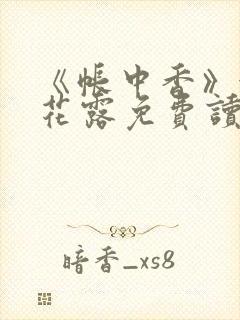 《帳中香》
花露免費讀
暗香_xs8